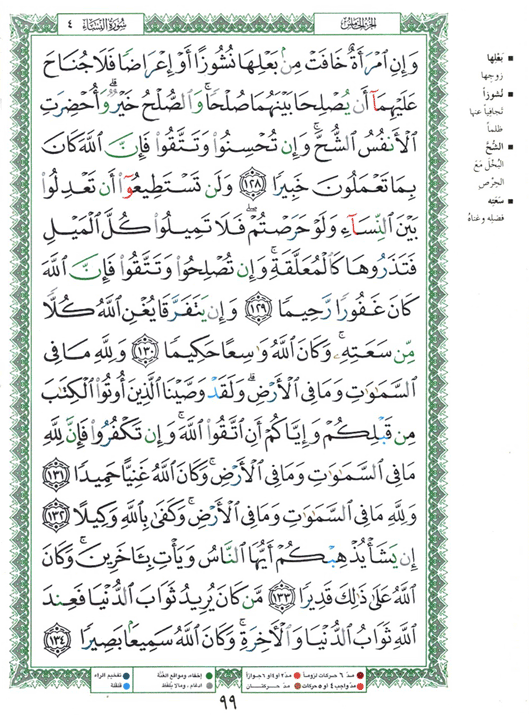 سُورَةُ النِّسَاءِ ٤
الجزء الخامس
وَإِنِ ٱمْرَأَةٌ خَافَتْ مِنۢ بَعْلِهَا نُشُوزًا أَوْ إِعْرَاضًا فَلَا جُنَاحَ
عَلَيْهِمَآ أَن يُصْلِحَا بَيْنَهُمَا صُلْحًا ۚ وَٱلصُّلْحُ خَيْرٌ ۗ وَأُحْضِرَتِ
ٱلْأَنفُسُ ٱلشُّحَّ ۚ وَإِن تُحْسِنُوا۟ وَتَتَّقُوا۟ فَإِنَّ ٱللَّهَ كَانَ
بِمَا تَعْمَلُونَ خَبِيرًا ١٢٨ وَلَن تَسْتَطِيعُوٓا۟ أَن تَعْدِلُوا۟
بَيْنَ ٱلنِّسَآءِ وَلَوْ حَرَصْتُمْ ۖ فَلَا تَمِيلُوا۟ كُلَّ ٱلْمَيْلِ
فَتَذَرُوهَا كَٱلْمُعَلَّقَةِ ۚ وَإِن تُصْلِحُوا۟ وَتَتَّقُوا۟ فَإِنَّ ٱللَّهَ
كَانَ غَفُورًا رَّحِيمًا ١٢٩ وَإِن يَتَفَرَّقَا يُغْنِ ٱللَّهُ كُلًّا
مِّن سَعَتِهِۦ ۚ وَكَانَ ٱللَّهُ وَٰسِعًا حَكِيمًا ١٣٠ وَلِلَّهِ مَا فِى
ٱلسَّمَٰوَٰتِ وَمَا فِى ٱلْأَرْضِ ۗ وَلَقَدْ وَصَّيْنَا ٱلَّذِينَ أُوتُوا۟ ٱلْكِتَٰبَ
مِن قَبْلِكُمْ وَإِيَّاكُمْ أَنِ ٱتَّقُوا۟ ٱللَّهَ ۚ وَإِن تَكْفُرُوا۟ فَإِنَّ لِلَّهِ
مَا فِى ٱلسَّمَٰوَٰتِ وَمَا فِى ٱلْأَرْضِ ۚ وَكَانَ ٱللَّهُ غَنِيًّا حَمِيدًا ١٣١
وَلِلَّهِ مَا فِى ٱلسَّمَٰوَٰتِ وَمَا فِى ٱلْأَرْضِ ۚ وَكَفَىٰ بِٱللَّهِ وَكِيلًا ١٣٢
إِن يَشَأْ يُذْهِبْكُمْ أَيُّهَا ٱلنَّاسُ وَيَأْتِ بِـَٔاخَرِينَ ۚ وَكَانَ
ٱللَّهُ عَلَىٰ ذَٰلِكَ قَدِيرًا ١٣٣ مَّن كَانَ يُرِيدُ ثَوَابَ ٱلدُّنْيَا فَعِندَ
ٱللَّهِ ثَوَابُ ٱلدُّنْيَا وَٱلْأَخِرَةِ ۚ وَكَانَ ٱللَّهُ سَمِيعًۢا بَصِيرًا ١٣٤
بَعْلِها
زوجها
نُشُوزاً
تجافياً عنها
ظلماً
الشُّحَّ
البُخْلَ مَعَ
الحِرْص
سَعَتِه
فضلِه وغناهُ
مدّ ٦ حركات لزوماً
مدّ ٢ أو ٤ أو ٦ جوازاً
إخفاء، ومواقع الغُنَّة
تفخيم الراء
مدّ واجب ٤ أو ٥ حركات
مدّ حركتان
ادغام، ومالا يُلفَظ
قلقلة
٩٩